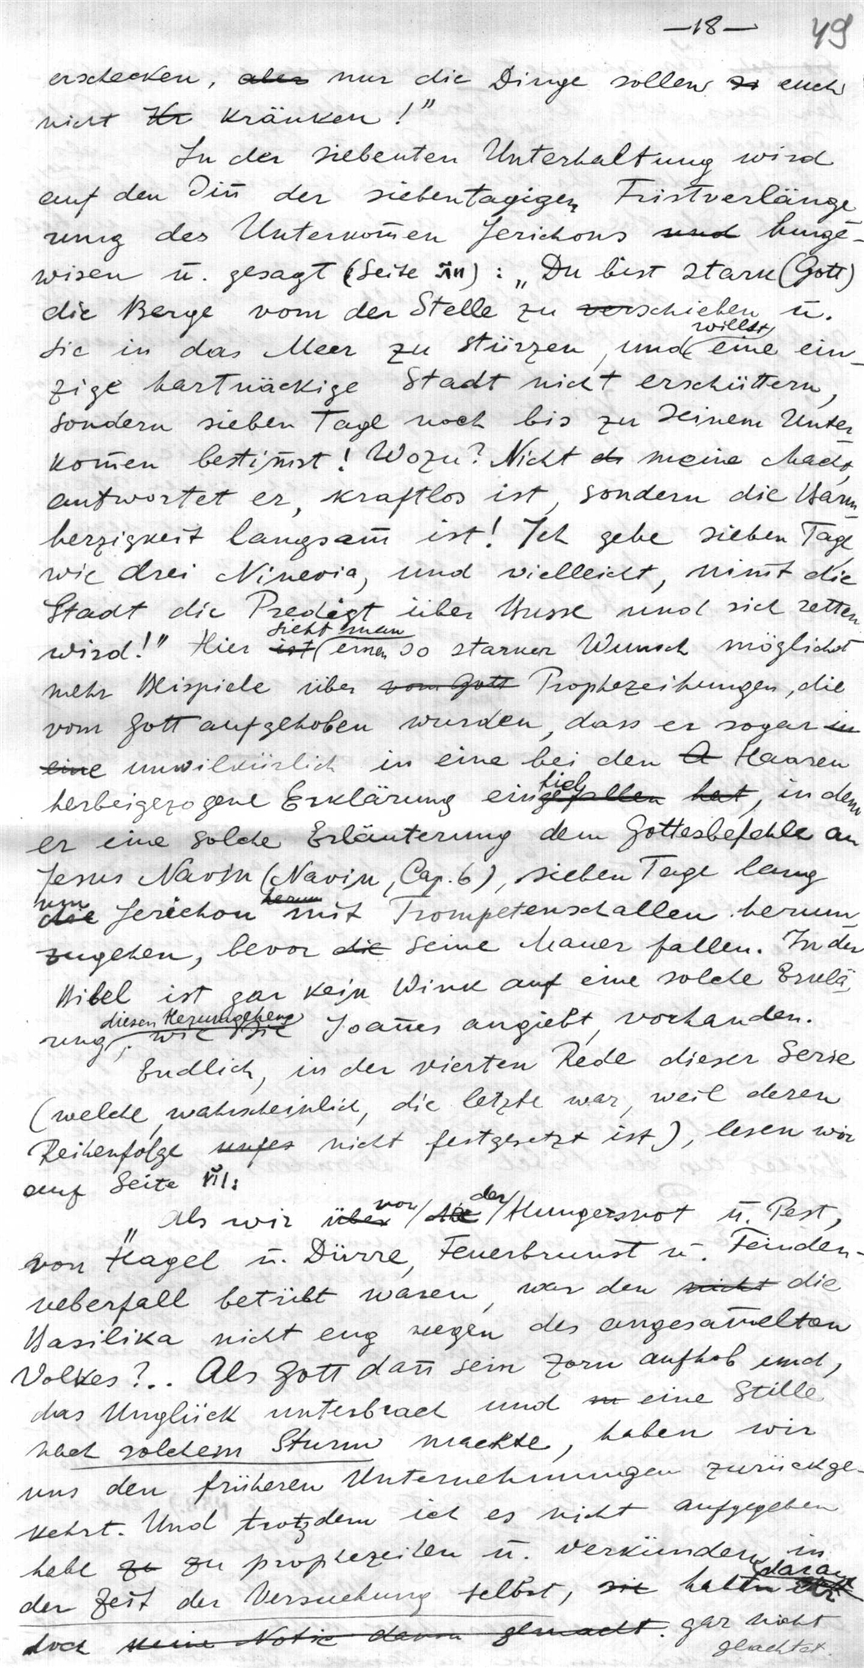 —18—
49
erschecken, aber nur die Dinge sollen zi euch
nicht Kr kränken!"
In der siebenten Unterhaltung wird
auf den Siñ der siebentagigen Fristverlänge
rung des Unterkom̄en Jerichons und hinge-
wisen u. gesagt (Seite ): „Du bist stark (Gott)
die Berge vom der Stelle zu verschieben u.
sie in das Meer zu stürzen, und willst eine ein-
zige hartnäckige Stadt nicht erschüttern,
sondern sieben Tage noch bis zu seinem Unter-
kom̄en bestim̄st! Wozu? Nicht ds meine Macht,
antwortet er, kraftlos ist, sondern die Barm
herzigkeit langsam̄ ist! Ich gebe sieben Tage,
wie drei Ninevia, und vielleicht, nim̄t die
Stadt die Predigt über Busse und sich retten
wird!" Hier ist sieht man einen so starker Wunsch möglichst
mehr Beispiele über vom Gott Prophezeihungen, die
vom Gott aufgehoben wurden, dass er sogar in
eine unwilkürlich in eine bei den Haaren
herbeigezogene Erklärung eingefallen hat fiel, indem
er eine solche Erläuterung dem Gottesbefehle an
Jesus Navin (Navin, Cap. 6), sieben Tage lang
die um Jerichon herum mit Trompetenschallen herum
zugehen, bevor die seine Mauer fallen. In der
Bibel ist gar kein Wink auf eine solche Erklä
rung, wie sie diesen Herumgehens Joañes angiebt, vorhanden.
Endlich, in der vierten Rede dieser Serie
(welche, wahrscheinlich, die letzte war, weil deren
Reihenfolge unges nicht festgesetzt ist), lesen wir
auf Seite :
„Als wir über von / die der / Hungersnot u. Pest,
von Hagel u. Dürre, Feuerbrunst u. Feinden-
ueberfall betrübt waren, war den nicht die
Basilika nicht eng wegen des angesam̄elten
Volkes?.. Als Gott dañ sein Zorn aufhob und,
das Unglück unterbrach und eine Stille
nach solchem Sturm machte, haben wir
uns den früheren Unternehmungen zurückge-
kehrt. Und trotzdem ich es nicht aufgegeben
habe zu zu prophezeihen u. verkünden in
der Zeit der Versuchung selbst, sie haben ihr darauf
doch keine Notiz davon gemacht. gar nicht
geachtet.